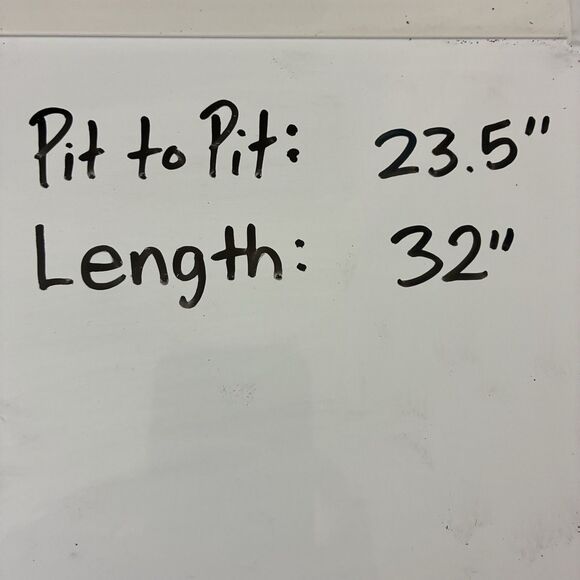 Pit to Pit: 23.5"
Length: 32"